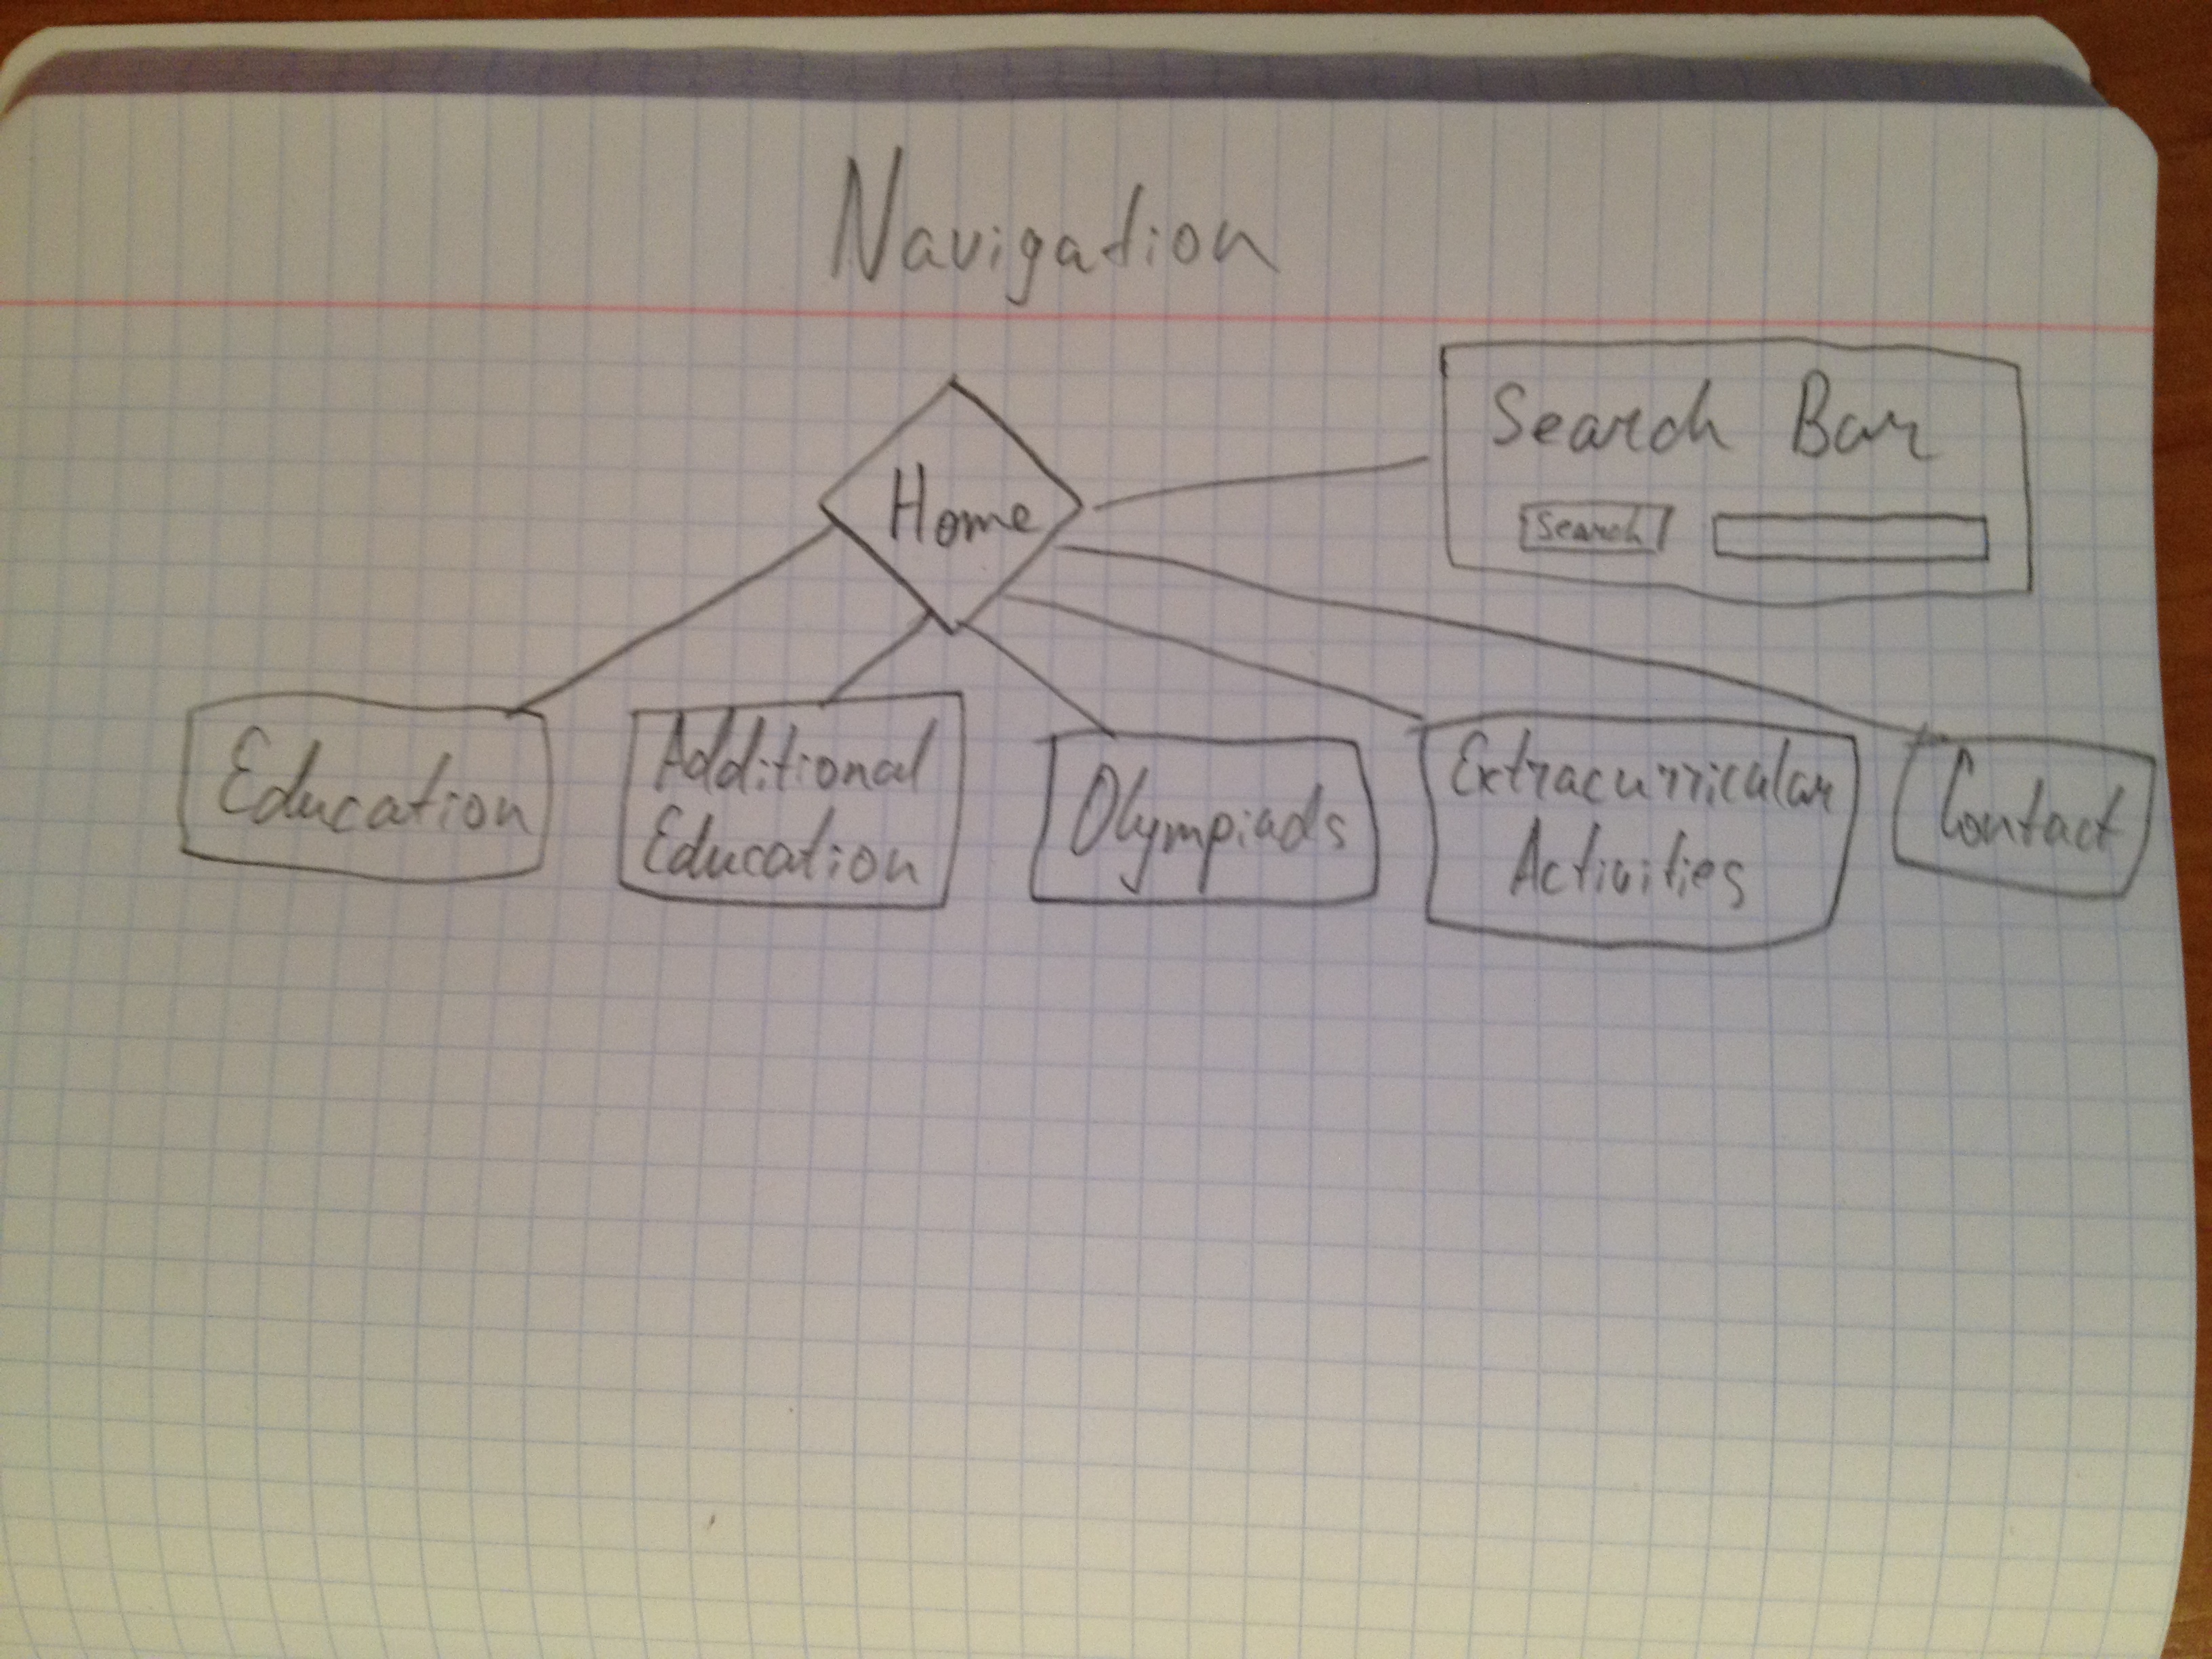 Navigation
Home
Search Bar
Search
Education
Additional
Education
Olympiads
Extracurricular
Activities
Contact